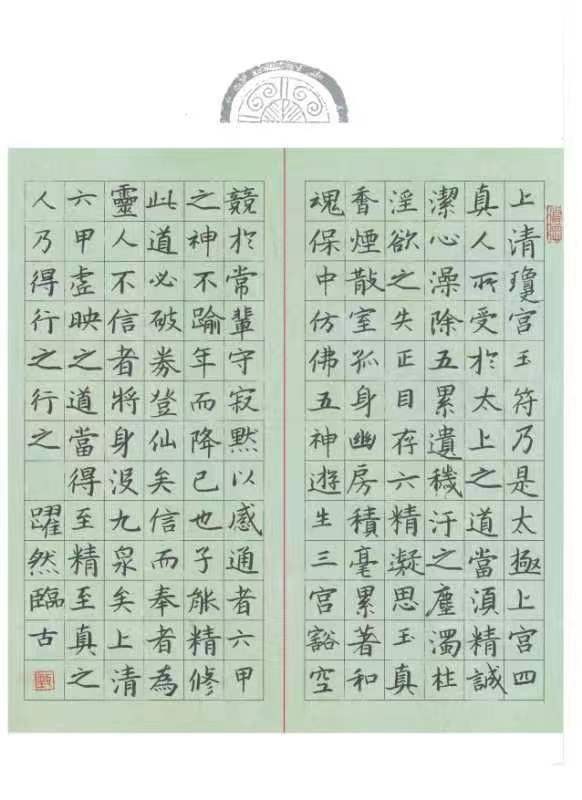 上清瓊宮玉符乃是太極上宮四
真人所受於太上之道當須精誠
潔心澡除五累遺穢汙之塵濁杜
淫欲之失正目存六精凝思玉真
香煙散室孤身幽房積毫累著和
魂保中仿佛五神遊生三宮豁空
競於常輩守寂默以感通者六甲
之神不踰年而降己也子能精修
此道必破券登仙矣信而奉者為
靈人不信者將身沒九泉矣上清
六甲虛映之道當得至精至真之
人乃得行之行之 躍然臨古